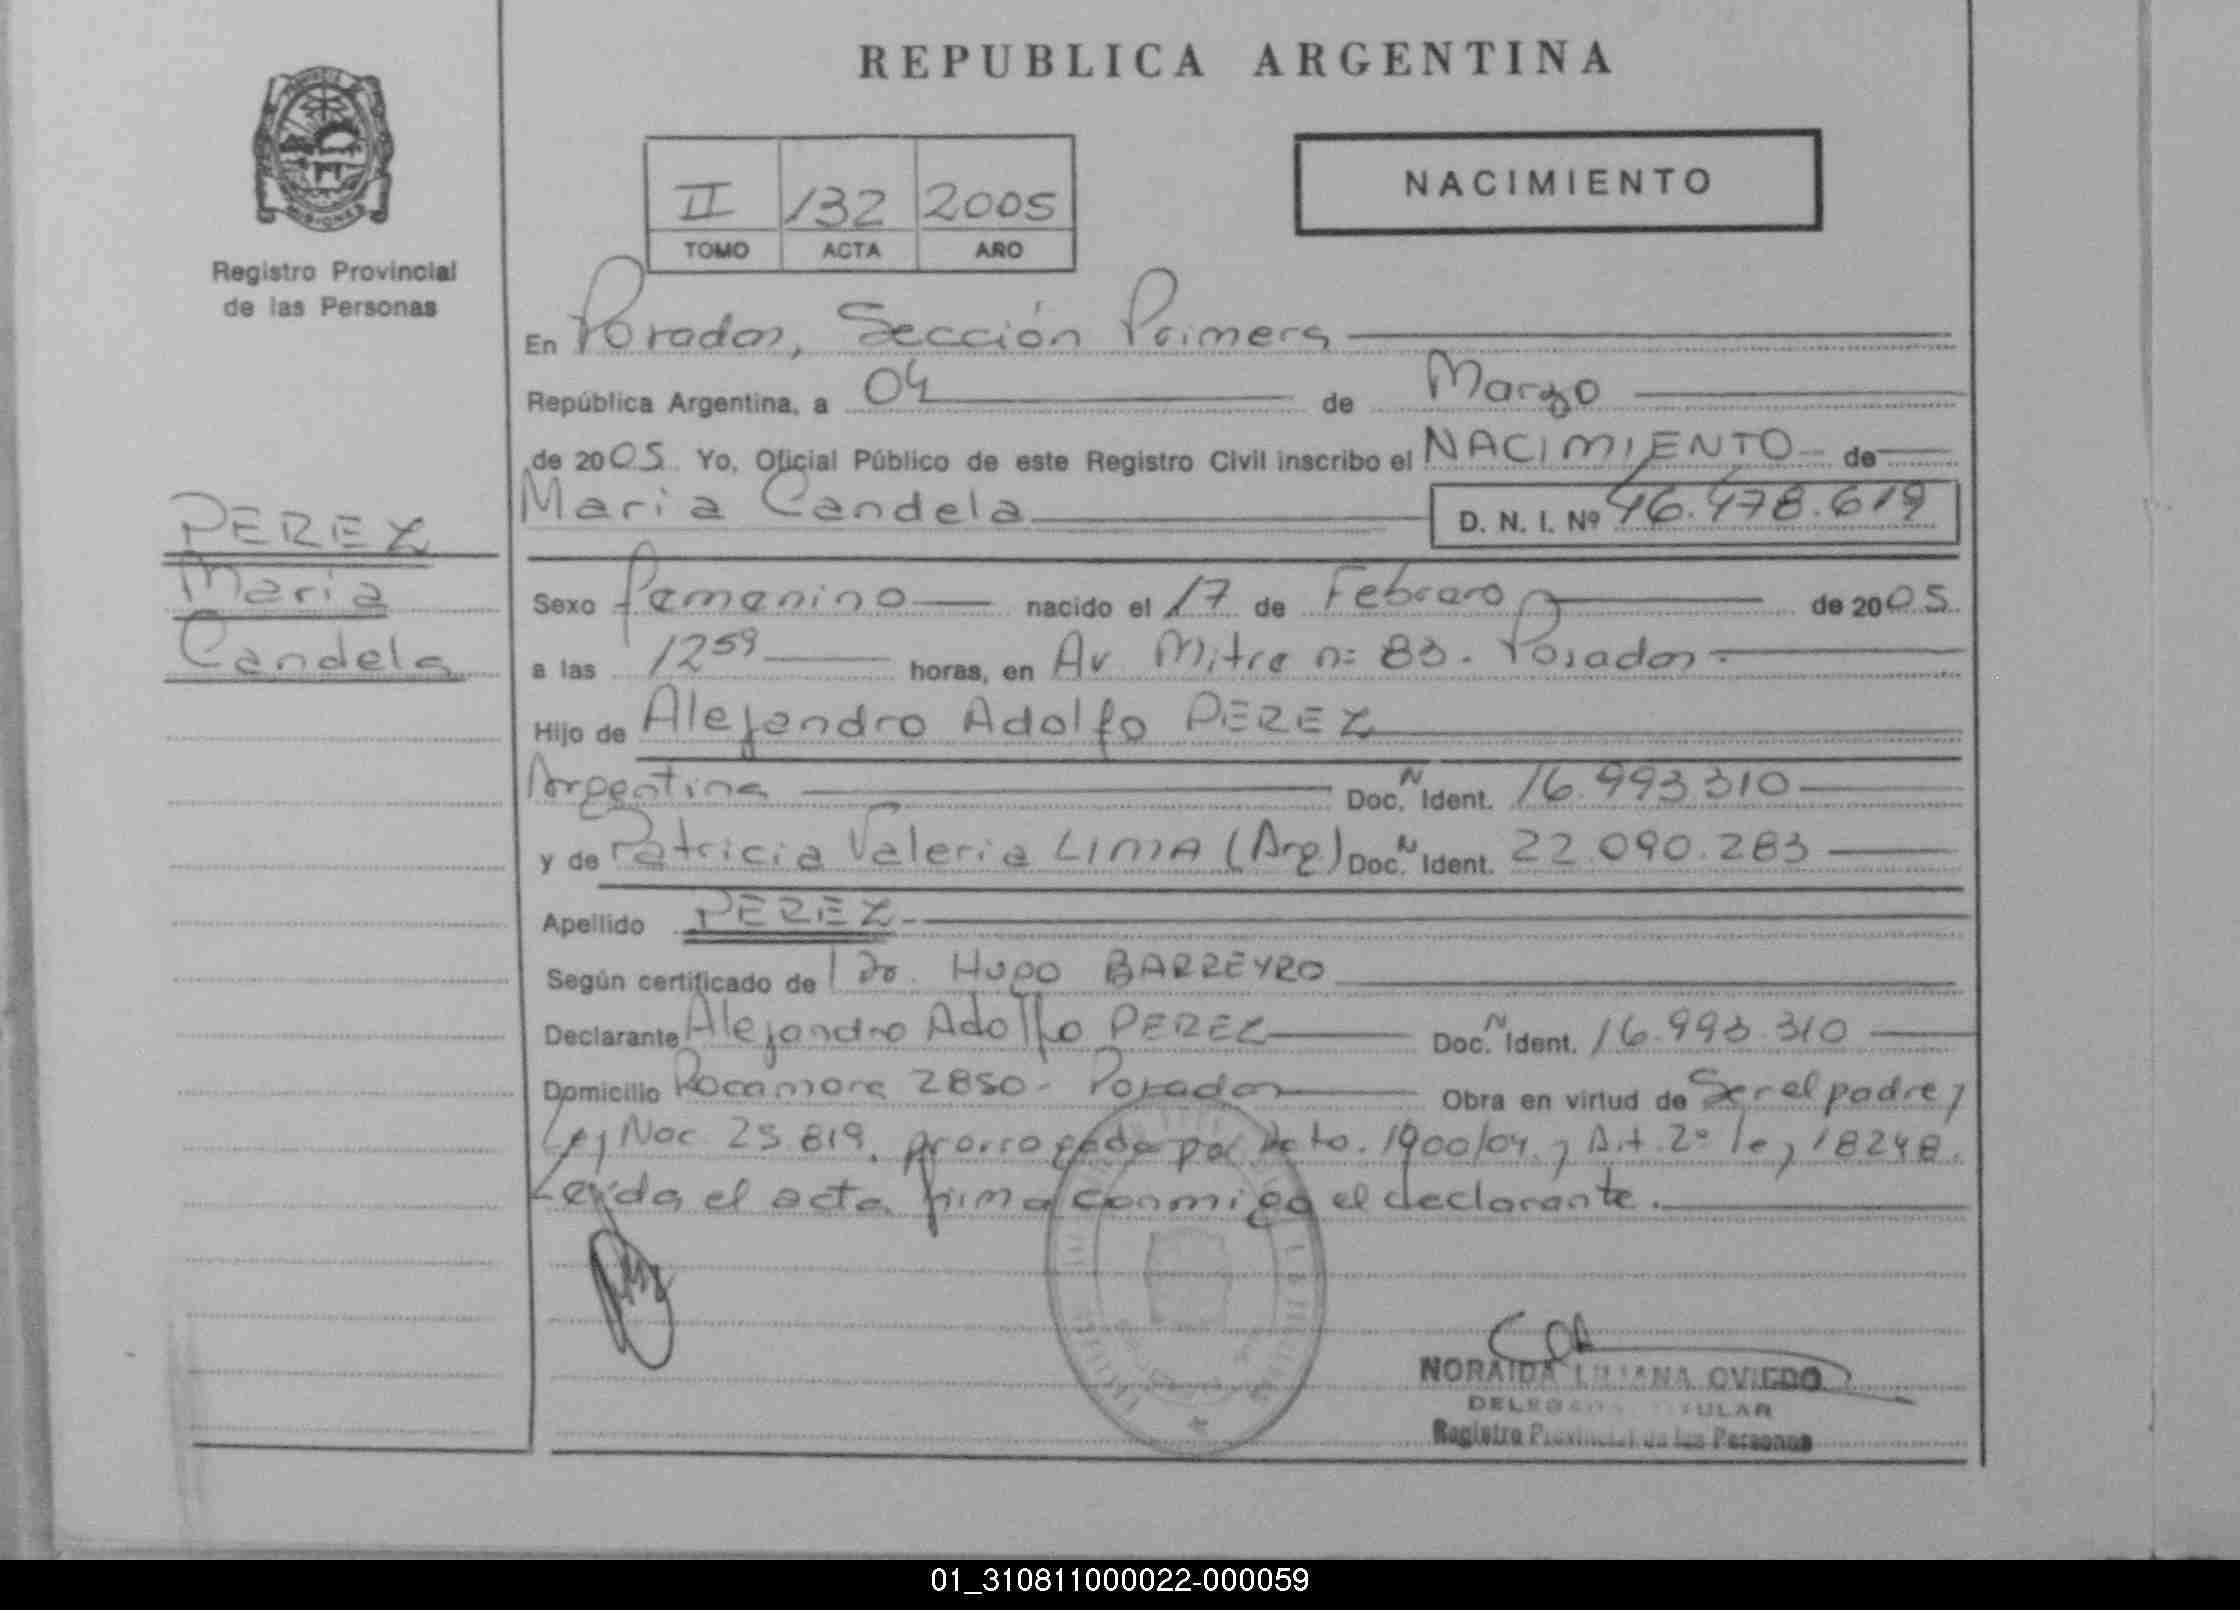 REPUBLICA ARGENTINA
MISIONES
Registro Provincial
de las Personas
II 132 2005
TOMO ACTA AÑO
NACIMIENTO
En Posadas, Sección Primera
República Argentina, a 04 de Marzo
de 2005. Yo, Oficial Público de este Registro Civil inscribo el NACIMIENTO de
Maria Candela D. N. I. Nº 46.478.619
PEREZ
Maria
Candela
Sexo femenino nacido el 17 de Febrero de 2005.
a las 12 59 horas, en Av. Mitre nº 83. Posadas.
Hijo de Alejandro Adolfo PEREZ
Argentina Doc. N Ident. 16.993.310
y de Patricia Valeria LIMA (Arg) Doc. N Ident. 22.090.283
Apellido PEREZ
Según certificado de Dr. Hugo BARREYRO
Declarante Alejandro Adolfo PEREZ Doc. N Ident. 16.993.310
Domicilio Rocamora 2850 - Posadas Obra en virtud de Ser el padre y
Ley Nac. 25.819, prorrogada por Dcto. 1900/04 y Art. 2º ley 18248.
Leída el acta firma conmigo el declarante.
NORAIDA LILIANA OVIEDO
DELEGADA TITULAR
Registro Provincial de las Personas
01_310811000022-000059